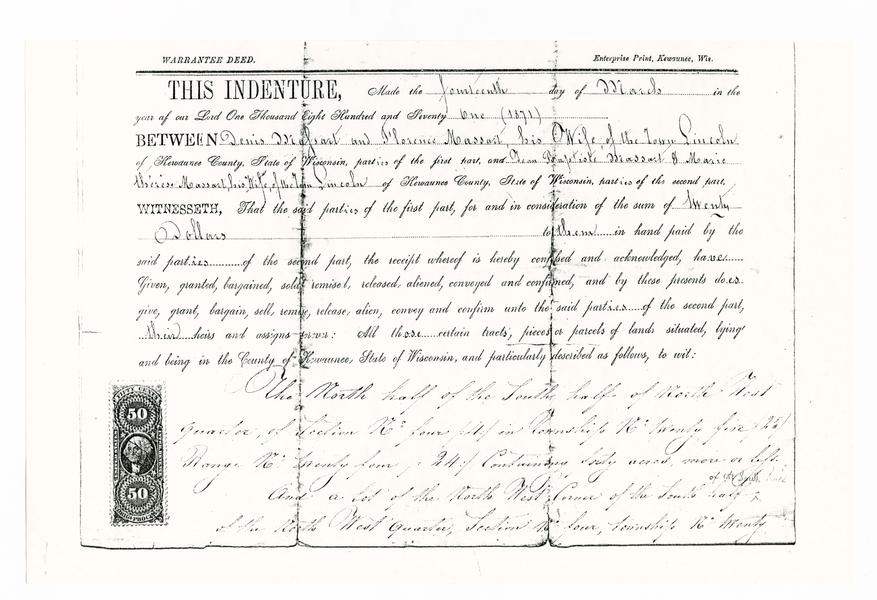 WARRANTEE DEED. Enterprise Print, Kewaunee, Wis.
THIS INDENTURE, Made the fourteenth day of March in the
year of our Lord One Thousand Eight Hundred and Seventy One (1871)
BETWEEN Denis Massart and Florence Massart his Wife, of the Town Lincoln
of Kewaunee County, State of Wisconsin, parties of the first part, and Jean Baptiste Massart & Marie
thérèse Massart his Wife, of the Town Lincoln of Kewaunee County, State of Wisconsin, parties of the second part,
WITNESSETH, That the said parties of the first part, for and in consideration of the sum of twenty
Dollars to them in hand paid by the
said parties of the second part, the receipt whereof is hereby confessed and acknowledged, have
Given, granted, bargained, sold, remised, released, aliened, conveyed and confirmed, and by these presents does
give, grant, bargain, sell, remise, release, alien, convey and confirm unto the said parties of the second part,
their heirs and assigns : All those certain tracts, pieces or parcels of lands situated, lying
and being in the County of Kewaunee, State of Wisconsin, and particularly described as follows, to wit:
The North half of the South half of North West
quarter, of Section No four (4) in Township No twenty five (25)
Range No twenty four (24) Containing sixty acres, more or less
of the South half
And a lot of the North West Corner of the South half
of the North West quarter, Section No four, township No twenty
50
50